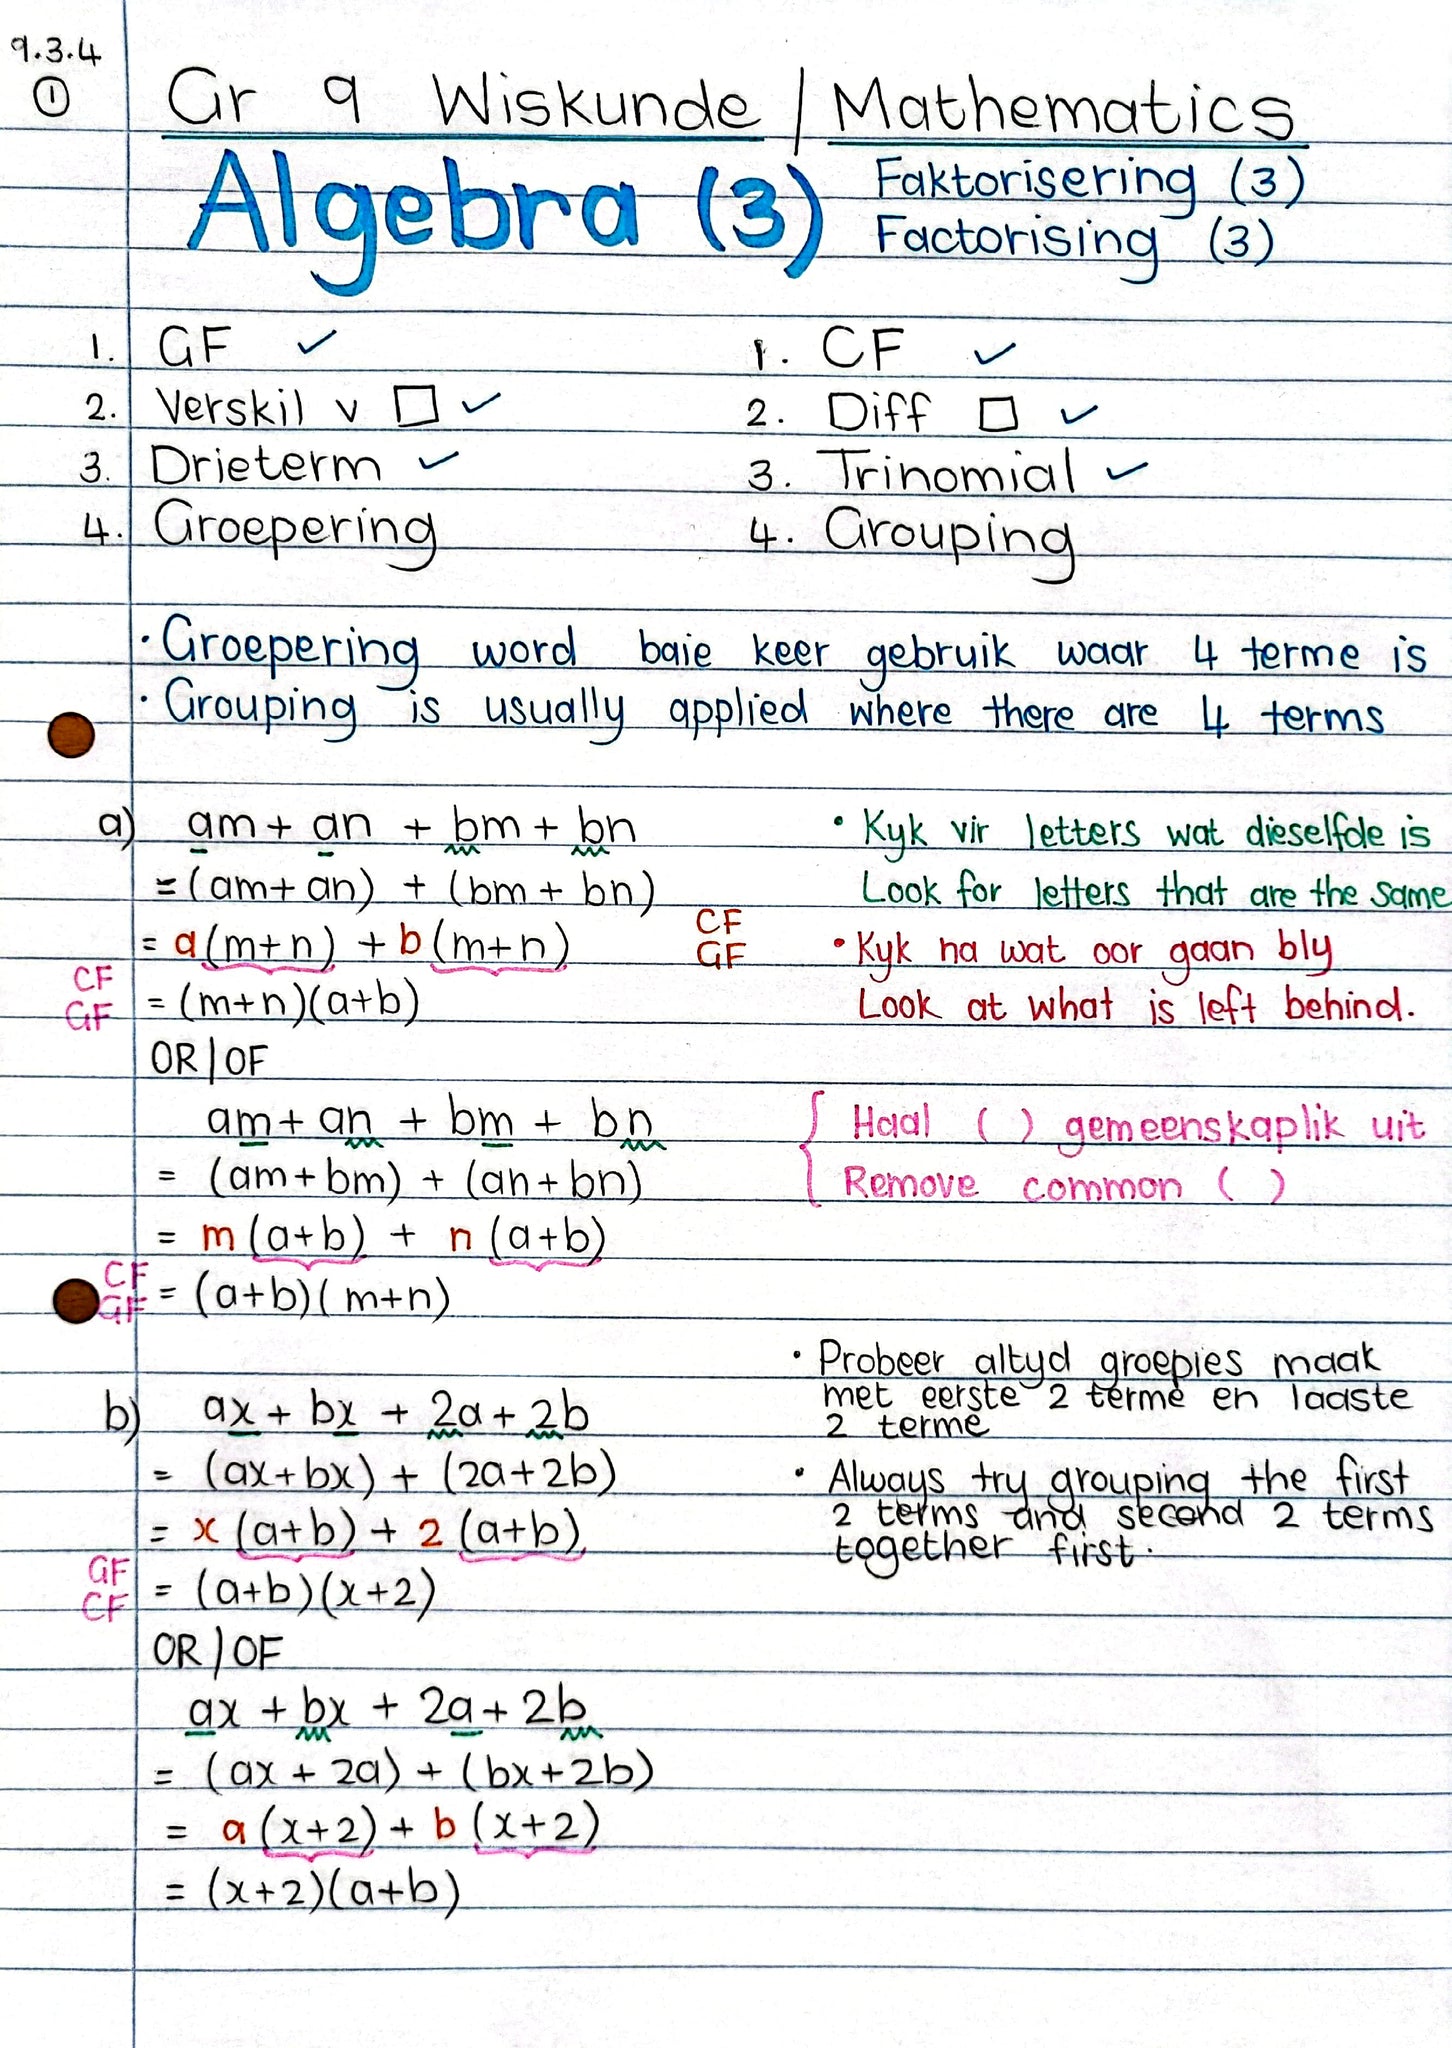 9.3.4
①
Gr 9 Wiskunde / Mathematics
Algebra (3)
Faktorisering (3)
Factorising (3)
1. GF ✓
2. Verskil v □ ✓
3. Drieterm ✓
4. Groepering
1. CF ✓
2. Diff □ ✓
3. Trinomial ✓
4. Grouping
· Groepering word baie keer gebruik waar 4 terme is
· Grouping is usually applied where there are 4 terms
a) am + an + bm + bn
= (am + an) + (bm + bn)
= a(m+n) + b(m+n)
CF
GF
CF
GF
= (m+n)(a+b)
OR / OF
am + an + bm + bn
= (am + bm) + (an + bn)
= m (a+b) + n (a+b)
CF
GF
= (a+b)(m+n)
• Kyk vir letters wat dieselfde is
Look for letters that are the same
• Kyk na wat oor gaan bly
Look at what is left behind.
{ Haal ( ) gemeenskaplik uit
Remove common ( )
b) ax + bx + 2a + 2b
= (ax + bx) + (2a + 2b)
= x (a+b) + 2 (a+b)
GF
CF
= (a+b)(x+2)
OR / OF
ax + bx + 2a + 2b
= (ax + 2a) + (bx + 2b)
= a (x+2) + b (x+2)
= (x+2)(a+b)
• Probeer altyd groepies maak
met eerste 2 terme en laaste
2 terme
• Always try grouping the first
2 terms and second 2 terms
together first.